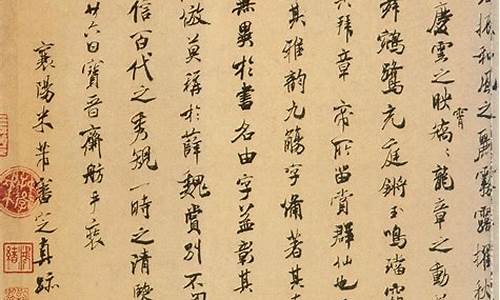 振和風之麗霧露擢秋
慶雲之映霄矯〻龍章之動
舞鵷鷺充庭鏘玉鳴璫
其拜章帝所留賞群仙也
其雅韻九觴字備著其
無異於書名由字益彰其
倣莫稱於薛魏賞別不
信百代之秀規一時之清鑒
廿六日寶晉齋舫手裝
襄陽米芾審定真跡